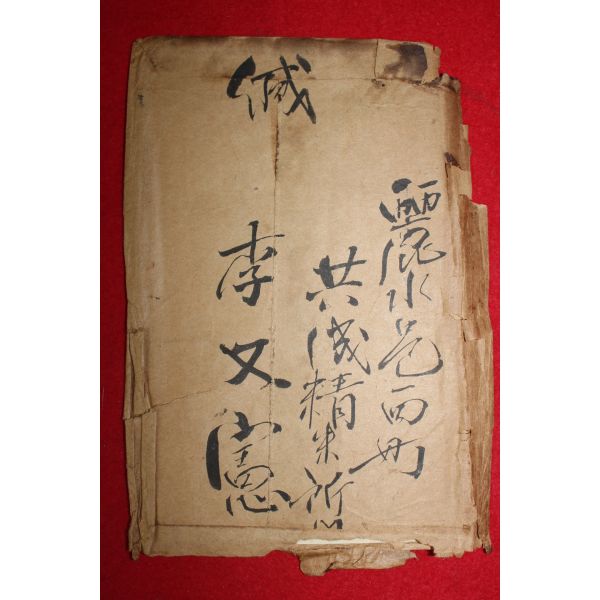 麗水邑西町
共成精米所
李又憲
緘